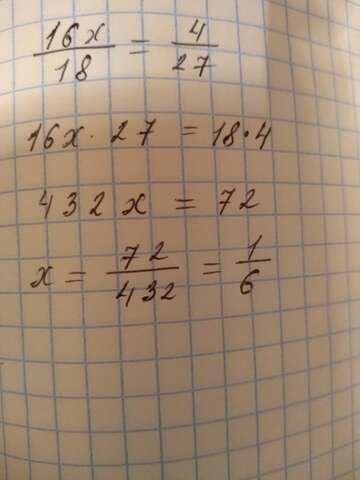 16x/18 = 4/27
16x · 27 = 18 · 4
432x = 72
x = 72/432 = 1/6